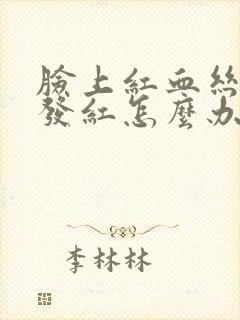 臉上紅血絲
發紅怎麼办
李林林